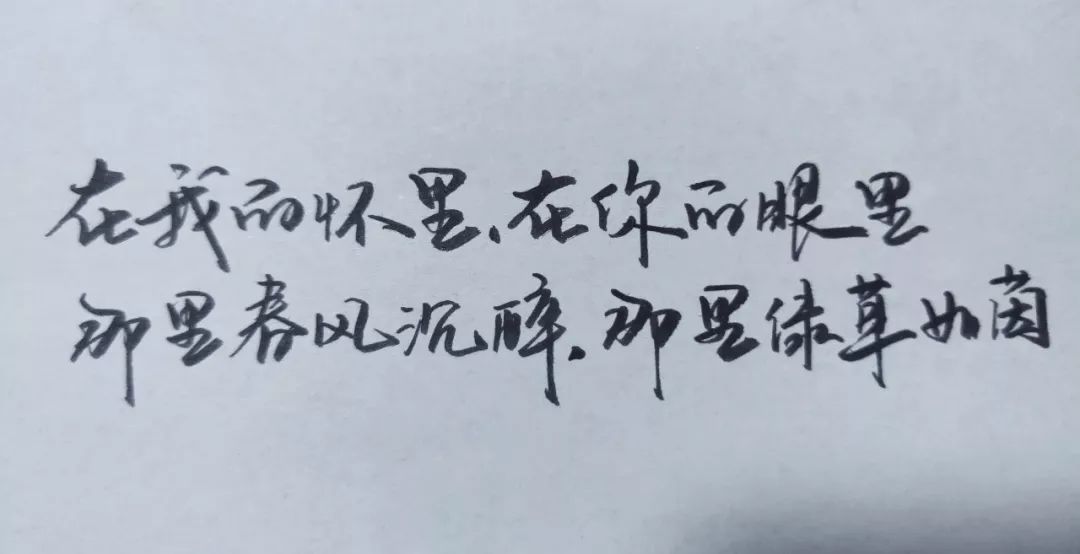 在我的怀里、在你的眼里
那里春风沉醉、那里绿草如茵